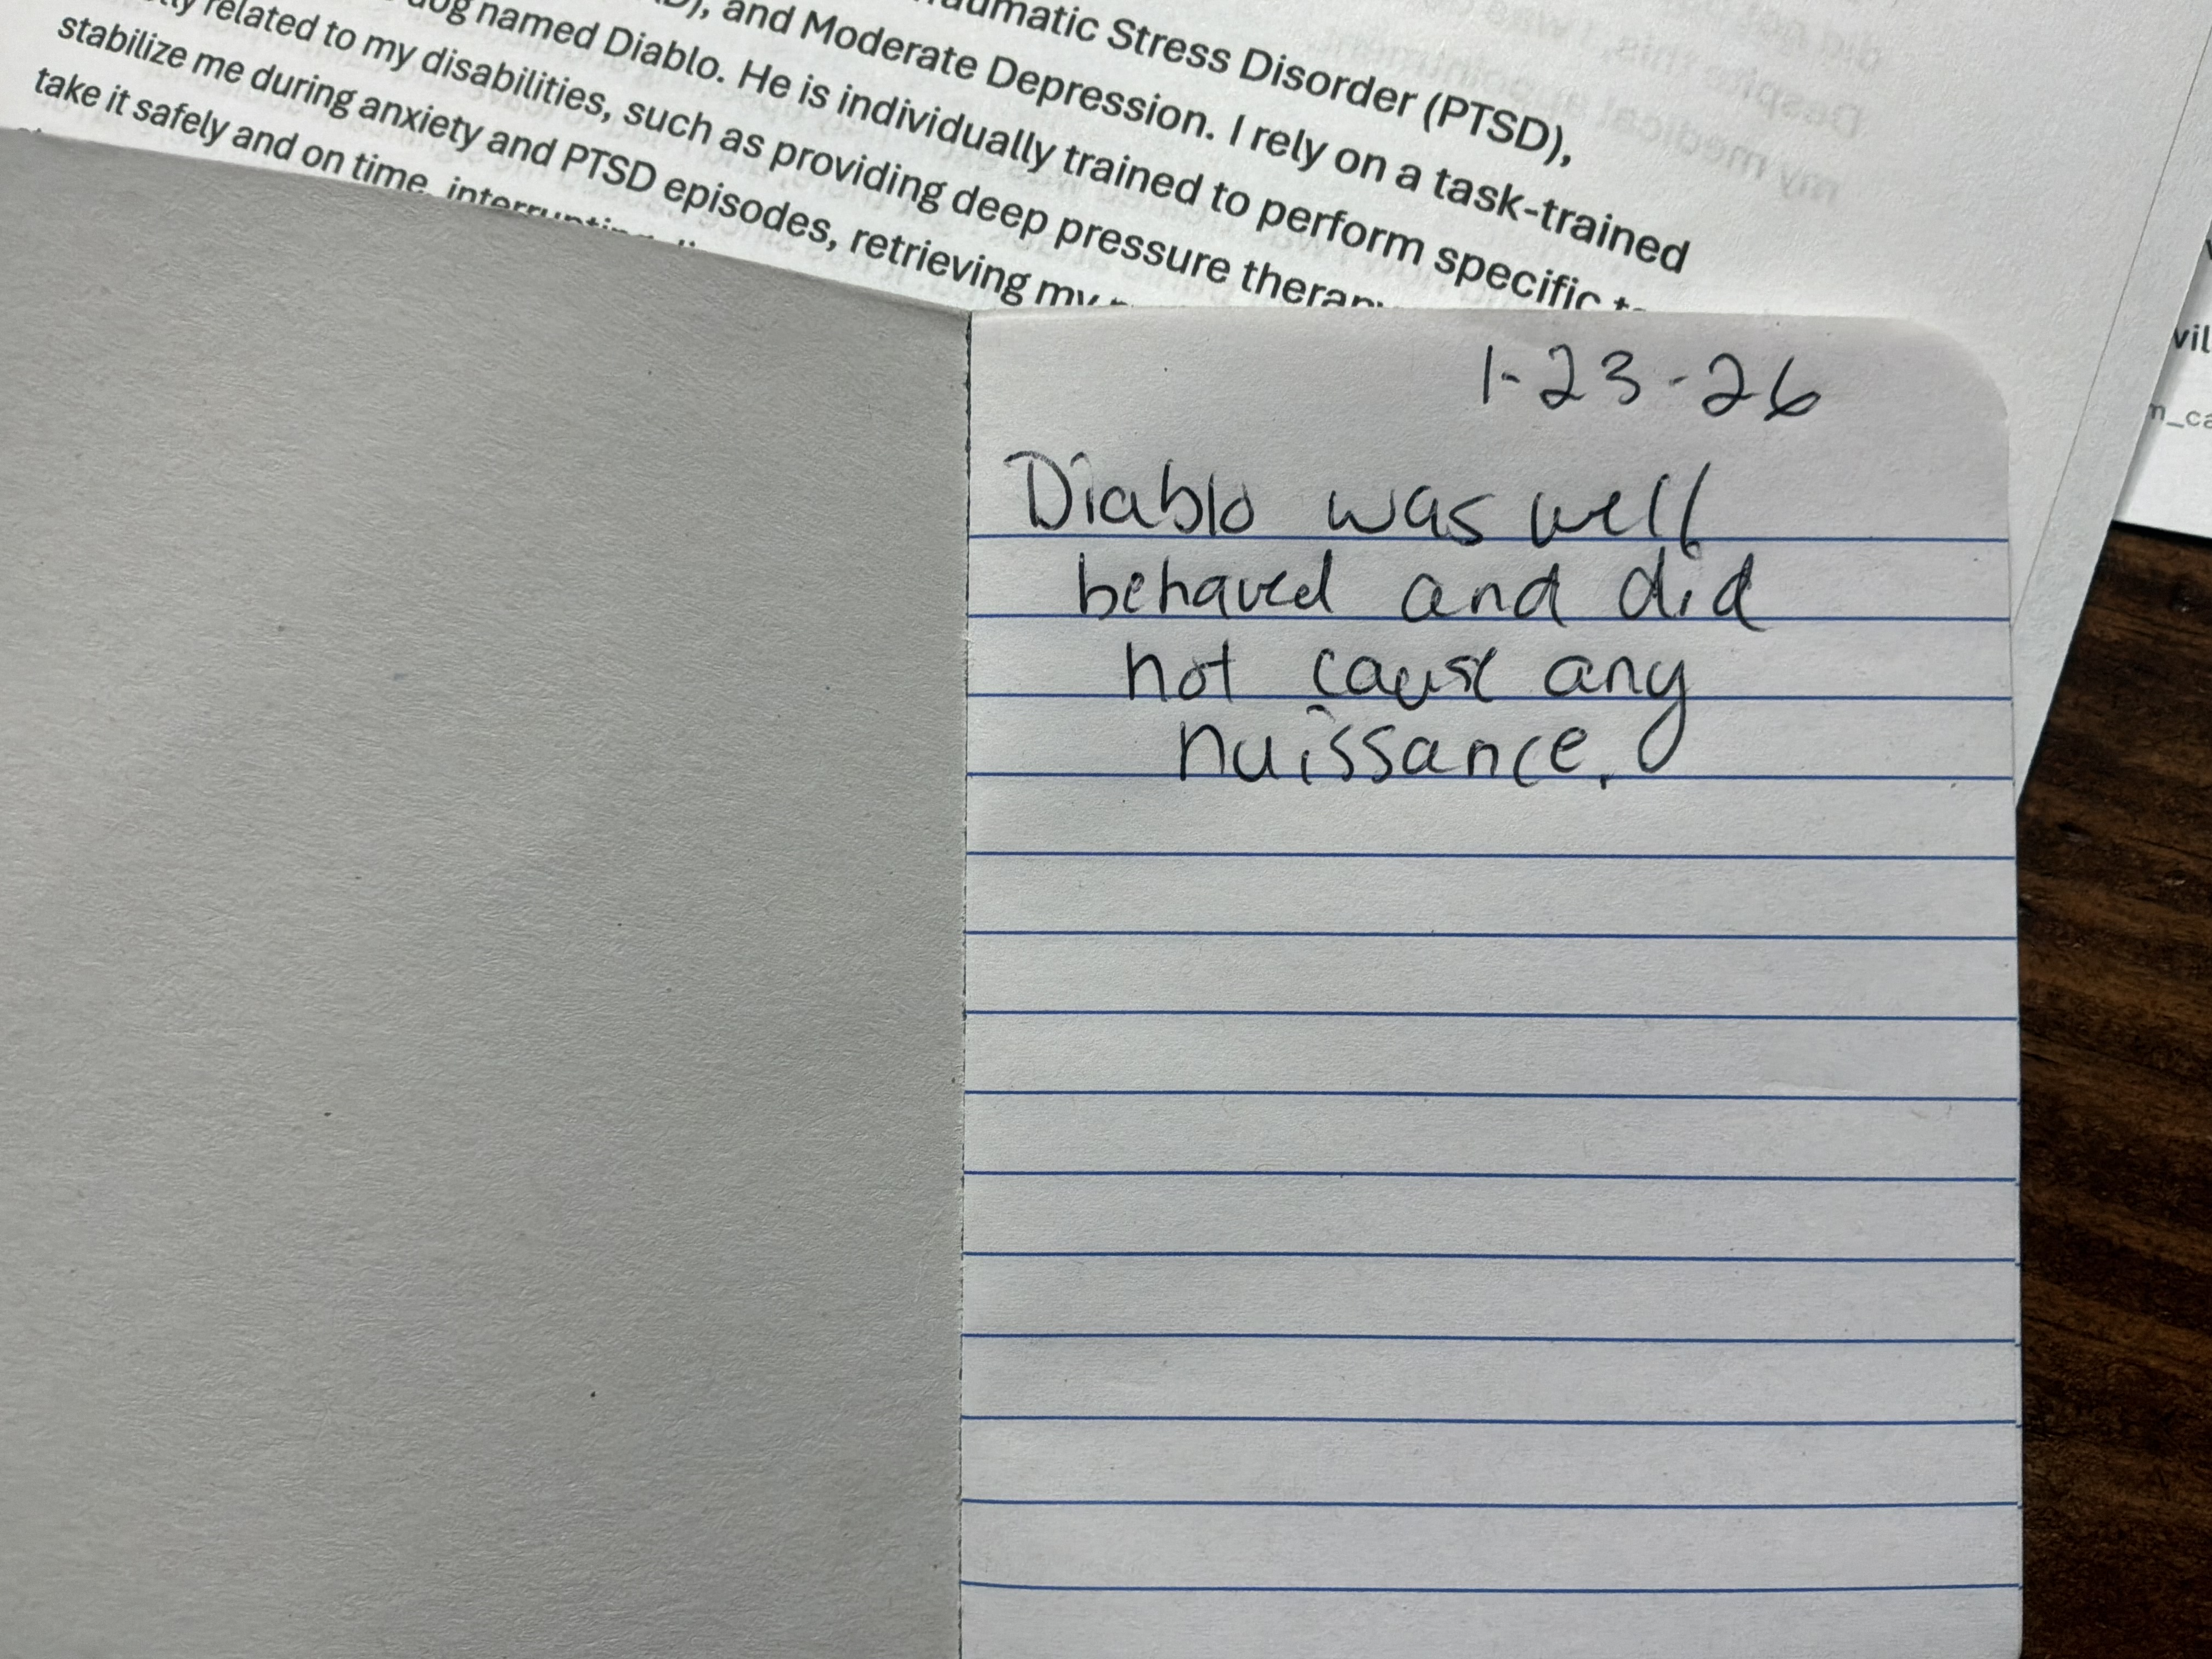 umatic Stress Disorder (PTSD),
and Moderate Depression. I rely on a task-trained
dog named Diablo. He is individually trained to perform specific
related to my disabilities, such as providing deep pressure therapy
stabilize me during anxiety and PTSD episodes, retrieving my
take it safely and on time, interrupting
did not
Despite this, I was
my medical appointment
vil
m_ca
1-23-26
Diablo was well
behaved and did
not cause any
nuissance.